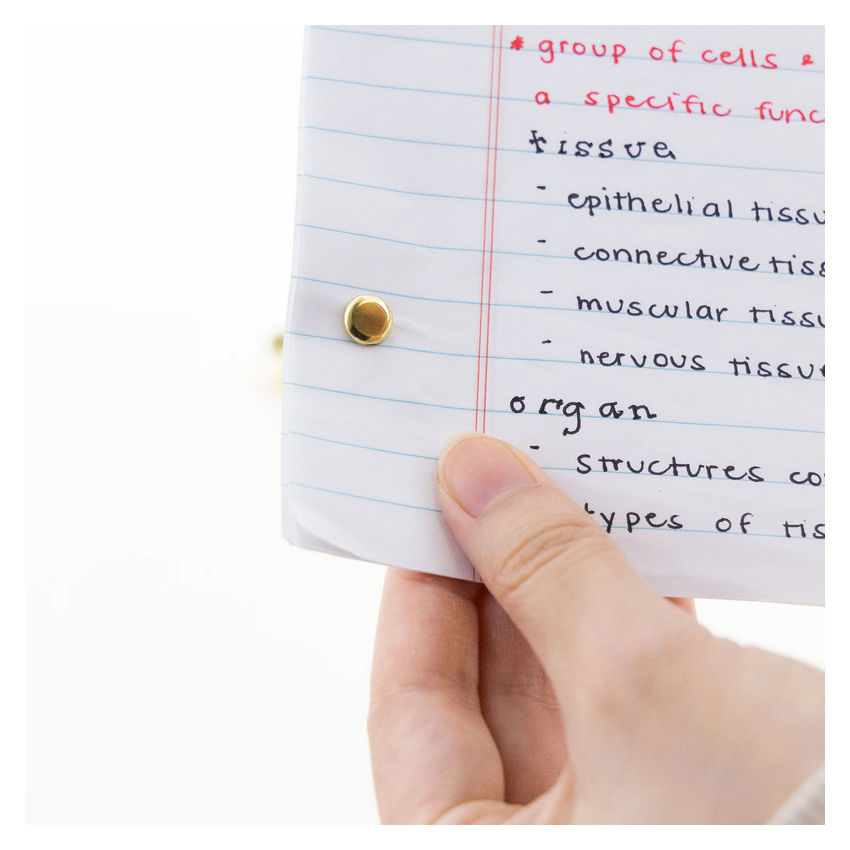 * group of cells &
a specific func
tissue
- epithelial tissu
- connective tiss
- muscular tissu
- nervous tissue
organ
- structures co
types of tis